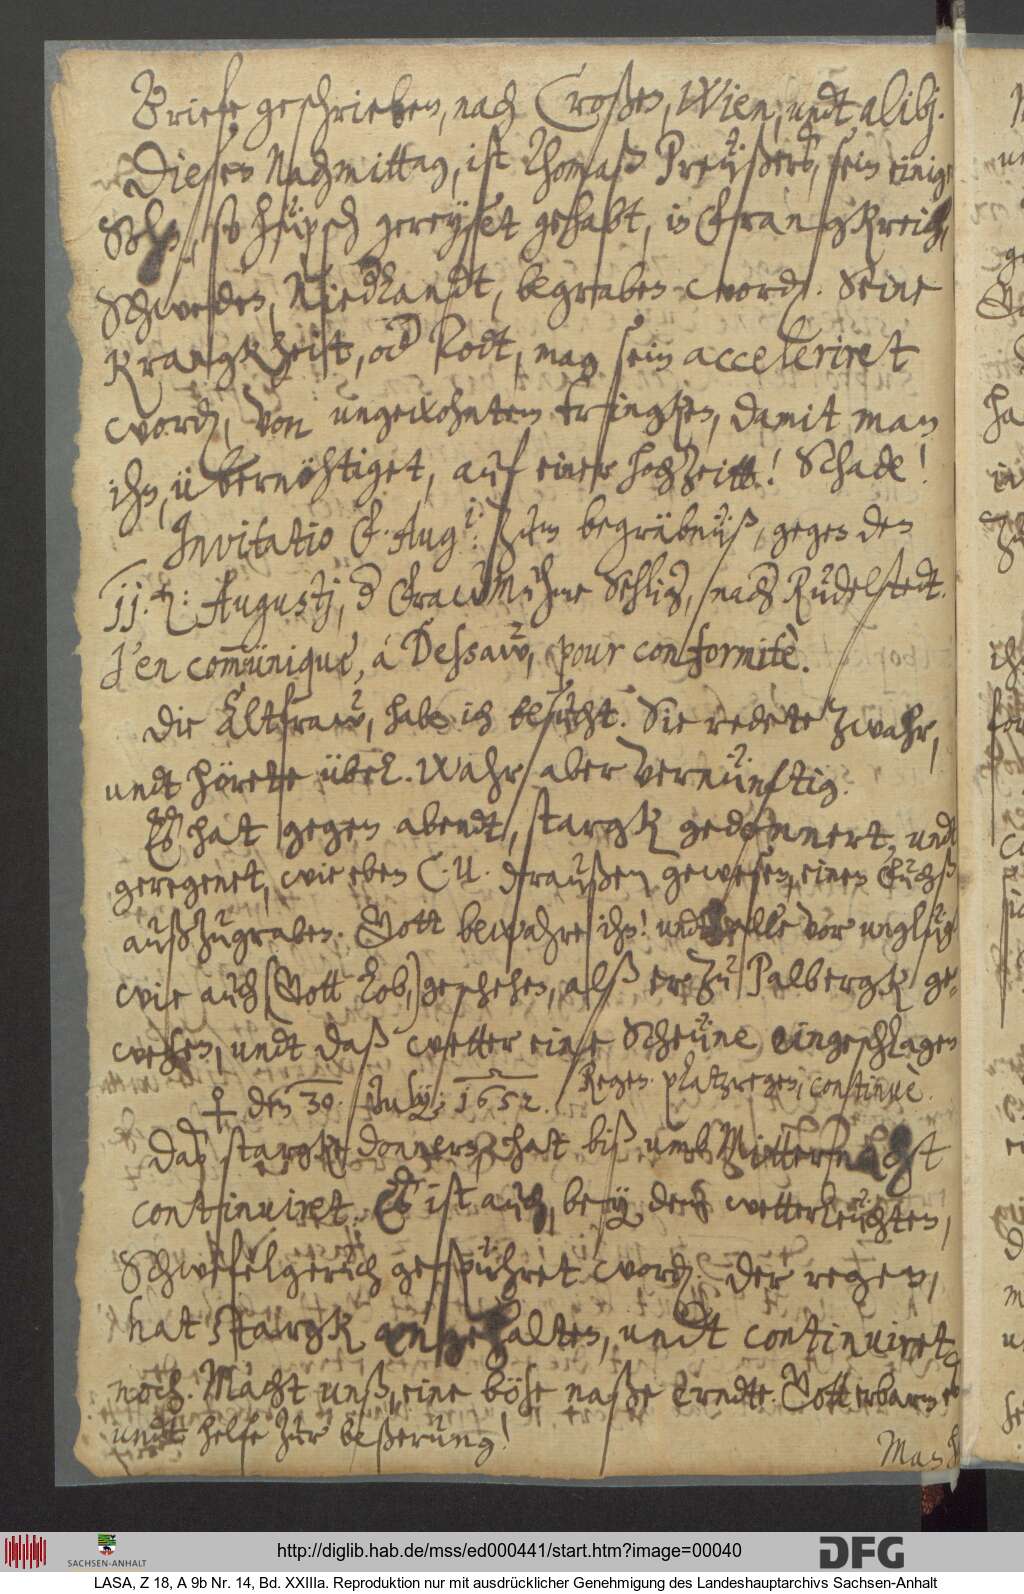 Briefe geschrieben, nach Croßen, Wien, undt alibj.
Diesen Nachmittag, ist Thomaß Preüßers, sein einig
Sohn, so hüpsch gereyset gehabt, in Frangkreich,
Schweden, Niedlandt, begraben worden. Seine
Krangkheitt, oder Todt, mag sein acceleriret
worden, von ungewohntem tringken, damit man
ihn, übernöhtiget, auf einer hochzeitt! Schade!
Invitatio F. Augi: zum begräbnüß, gegen den
11. t: Augustj, der Fraw Muhme Schlig, nach Rudelstedt.
J'en communiquè, á Dessaw, pour conformitè.
Die Altfraw, habe ich besucht. Sie redete zwahr,
undt hörete übel. Wahr aber vernünftig.
Es hat gegen abendt, stargk gedonnert, undt
geregenet, wie eben C. U. draußen gewesen, einen Fuchß
außzugraben. Gott bewahre ihn! undt alle vor unglügk
wie auch (Gott Lob,) geschehen, alß er zu Palbergk ge-
wesen, undt daß wetter eine Scheüne eingeschlagen
♀ den 30. July: 1652. Regen. platzregen, continuè.
Das stargke donnern, hat biß umb Mitternacht
continuiret. Es ist auch, bey dem wetterleuchten,
Schwefelgeruch gespühret worden. Der regen,
hat stargk angehalten, undt continuiret
noch. Macht unß, eine böse naße Erndte. Gott erbarm es
undt helfe zur beßerung!
SACHSEN-ANHALT
http://diglib.hab.de/mss/ed000441/start.htm?image=00040
DFG
LASA, Z 18, A 9b Nr. 14, Bd. XXIIIa. Reproduktion nur mit ausdrücklicher Genehmigung des Landeshauptarchivs Sachsen-Anhalt